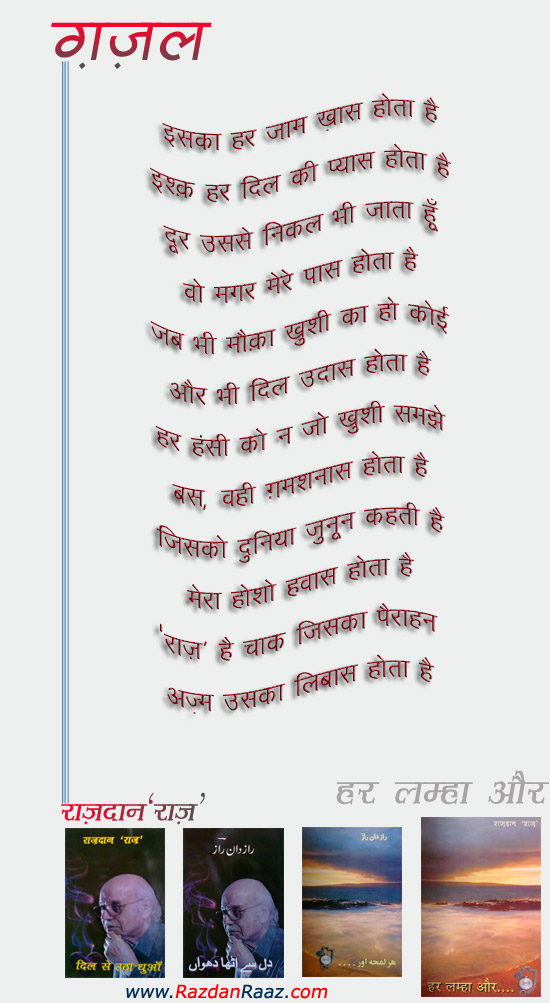 ग़ज़ल
इसका हर जाम ख़ास होता है
इश्क़ हर दिल की प्यास होता है
दूर उससे निकल भी जाता हूँ
वो मगर मेरे पास होता है
जब भी मौक़ा खुशी का हो कोई
और भी दिल उदास होता है
हर हंसी को न जो खुशी समझे
बस, वही ग़मशनास होता है
जिसको दुनिया जुनून कहती है
मेरा होशो हवास होता है
'राज़' है चाक जिसका पैराहन
अज़्म उसका लिबास होता है
हर लम्हा और
राज़दान 'राज़'
राज़दान 'राज़'
दिल से उठा धुआँ
راز دان راز
دل سے اٹھا دھواں
راز دان راز
ہر لمحہ اور ....
राज़दान 'राज़'
हर लम्हा और....
www.RazdanRaaz.com